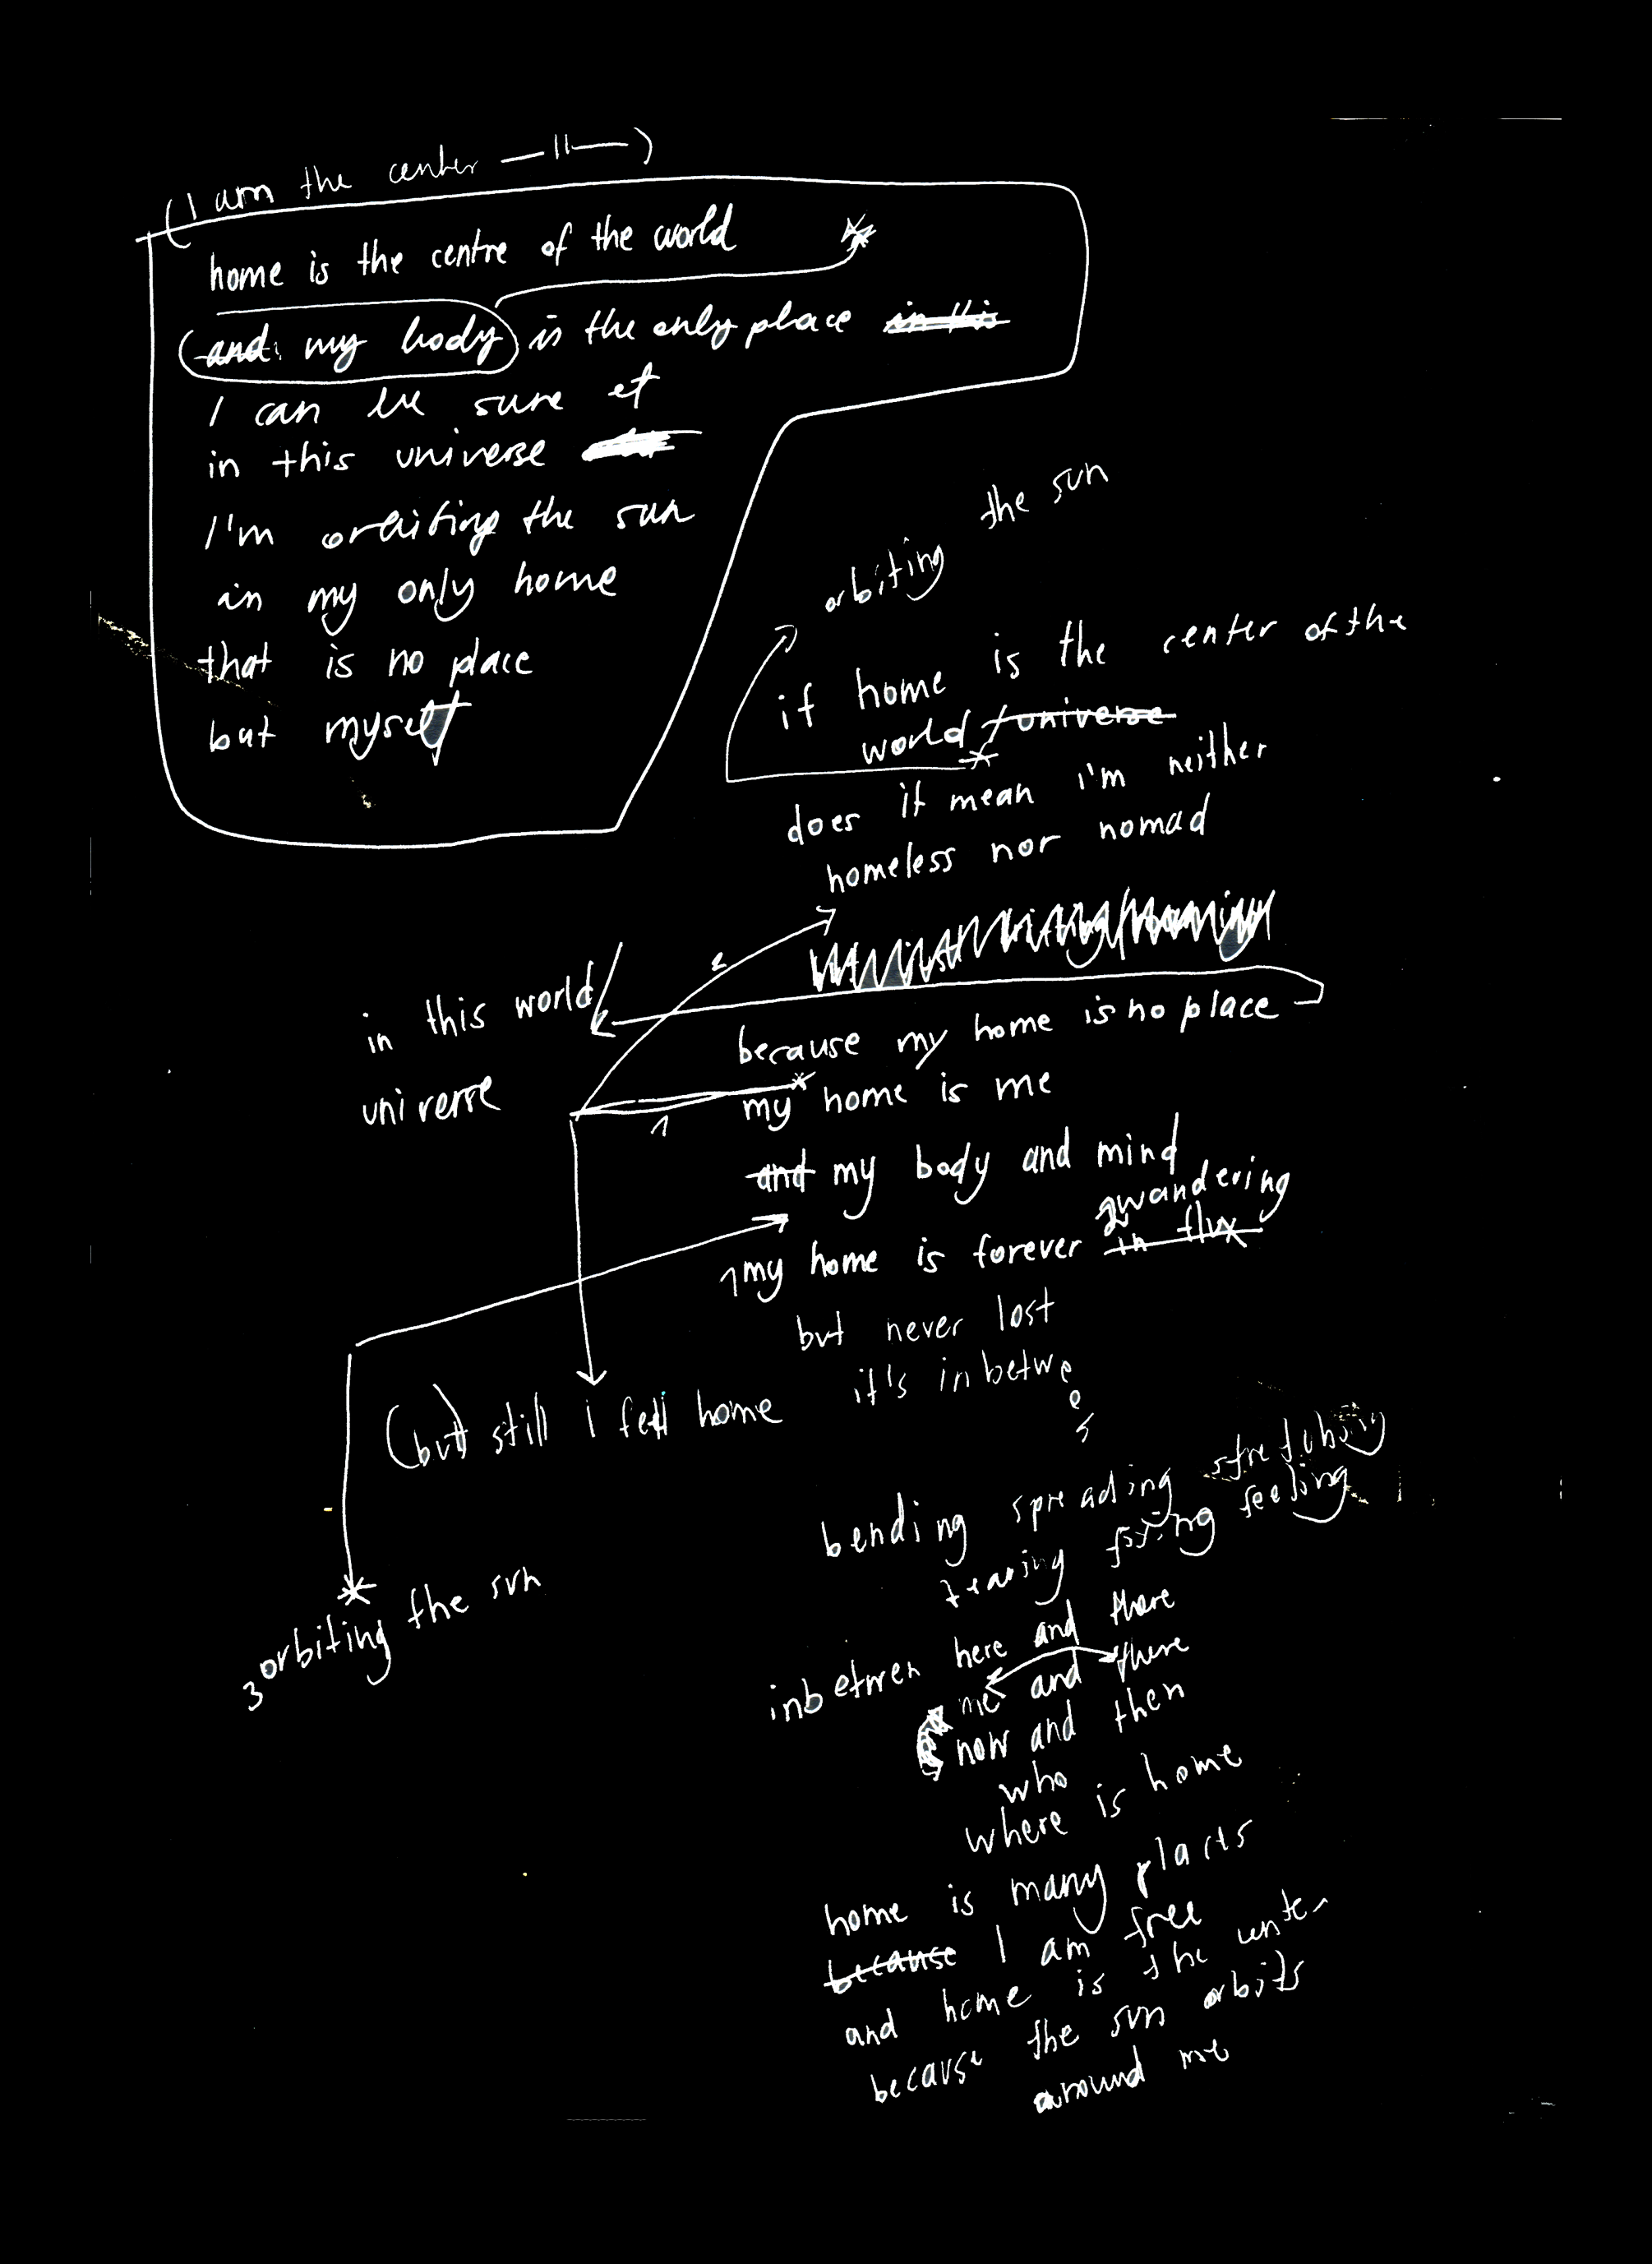 (I am the center —〃—)
home is the centre of the world
and my body is the only place in this
I can be sure of
in this universe
I'm orbiting the sun
in my only home
that is no place
but myself
orbiting the sun
if home is the center of the
world / universe
does it mean i'm neither
homeless nor nomad
in this world /
universe
because my home is no place
my home is me
and my body and mind
2 wandering
1 my home is forever in flux
but never lost
it's inbetwe
(but) still i feel home
bending spreading stretching
tearing feeling
3 orbiting the sun
inbetween here and there
me and there
now and then
who
where is home
home is many places
because I am free
and home is the center
because the sun orbits
around me